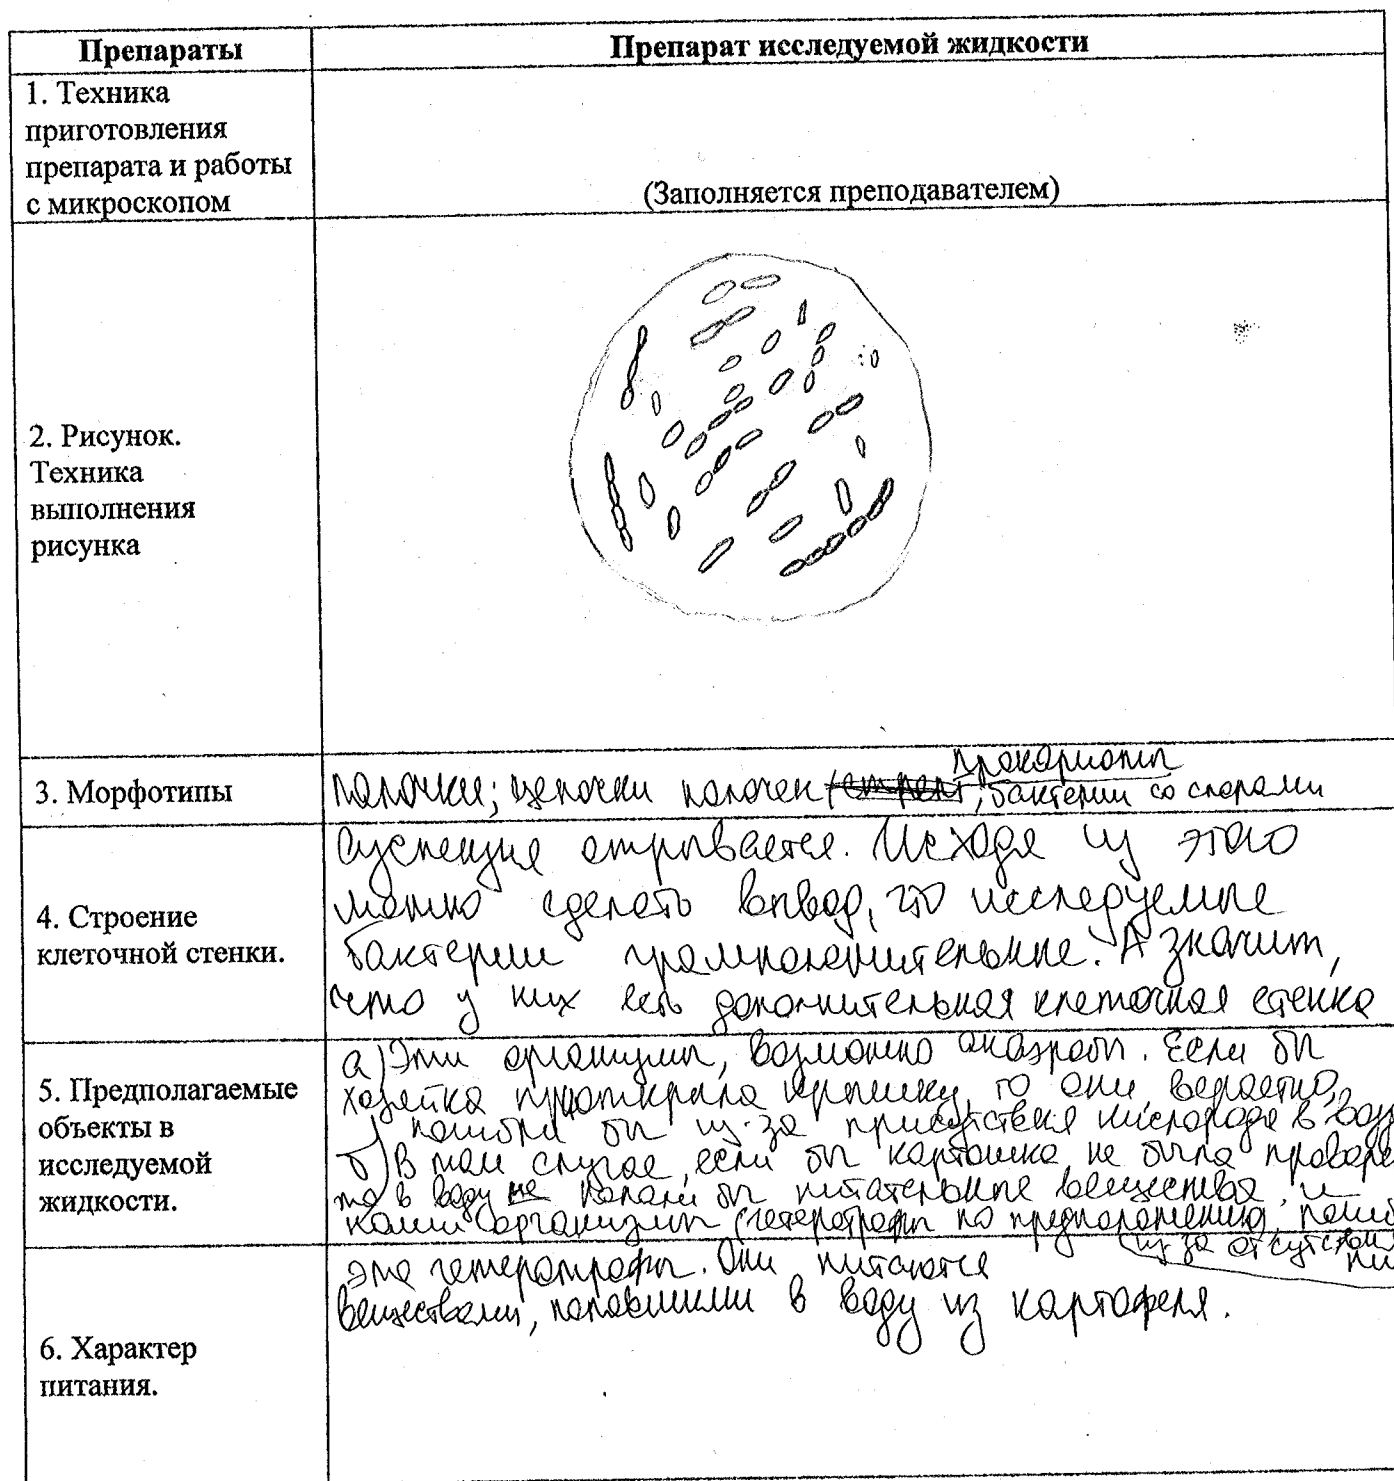 Препараты
Препарат исследуемой жидкости
1. Техника
приготовления
препарата и работы
с микроскопом
(Заполняется преподавателем)
2. Рисунок.
Техника
выполнения
рисунка
3. Морфотипы
прокариоты
палочки; цепочки палочек, бактерии со спорами
4. Строение
клеточной стенки.
Суспензия отрывается. Исходя из этого
можно сделать вывод, что исследуемые
бактерии грамположительные. А значит,
что у них есть дополнительная клеточная стенка
5. Предполагаемые
объекты в
исследуемой
жидкости.
а) Эти организмы, возможно анаэробы. Если бы
хозяйка приоткрыла крышку, то они, вероятно,
погибли бы из-за присутствия кислорода в
б) В том случае, если бы картошка не была
то в воду не попали бы питательные вещества, и
организмы (гетеротрофы по предположению)
из-за
6. Характер
питания.
Это гетеротрофы. Они питаются
веществами, попавшими в воду из картофеля.